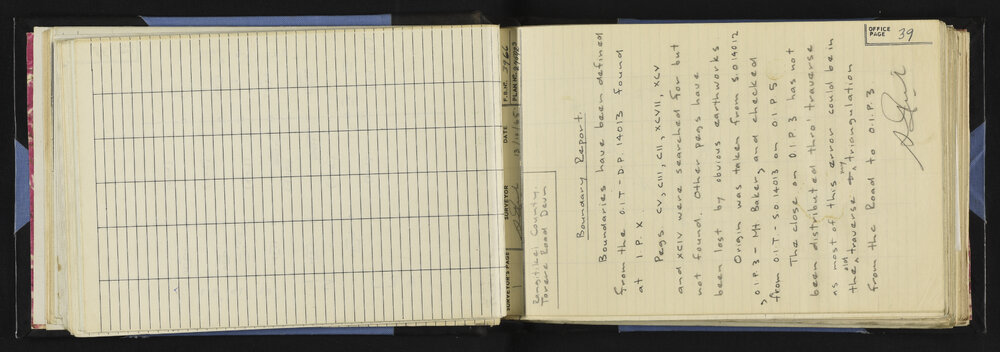 OFFICE PAGE 39
SURVEYOR'S PAGE 1
SURVEYOR
DATE 13/10/65
F.B. Nº 2966
PLAN Nº
Rangitikei County.
Torere Road Devn
Boundary Report.
Boundaries have been defined
from the O.I.T - D.P. 14013 found
at I.P. X.
Pegs CV, CIII, CII, XCVII, XCV
and XCIV were searched for but
not found. Other pegs have
been lost by obvious earthworks.
Origin was taken from S.O.14012
, O.I.P.3 - Mt Baker, and checked
from O.I.T - S.O.14013 on O.I.P.5
The close on O.I.P 3 has not
been distributed thro' traverse
as most of this error could be in
the old traverse & my triangulation
from the Road to O.I.P.3